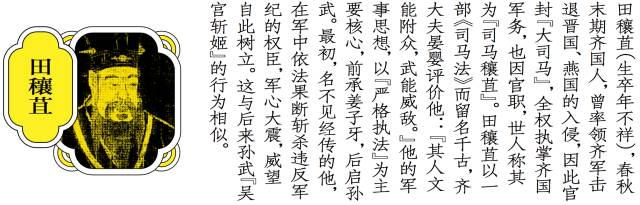 田穰苴(生卒年不祥)，春秋
末期齐国人，曾率领齐军击
退晋国、燕国的入侵，因此官
封『大司马』，全权执掌齐国
军务，也因官职，世人称其
为『司马穰苴』。田穰苴以一
部《司马法》而留名千古，齐
大夫晏婴评价他：『其人文
能附众，武能威敌。』他的军
事思想，以『严格执法』为主
要核心，前承姜子牙，后启孙
武。最初，名不见经传的他，
在军中依法果断斩杀违反军
纪的权臣，军心大震，威望
自此树立。这与后来孙武『吴
宫斩姬』的行为相似。
田穰苴